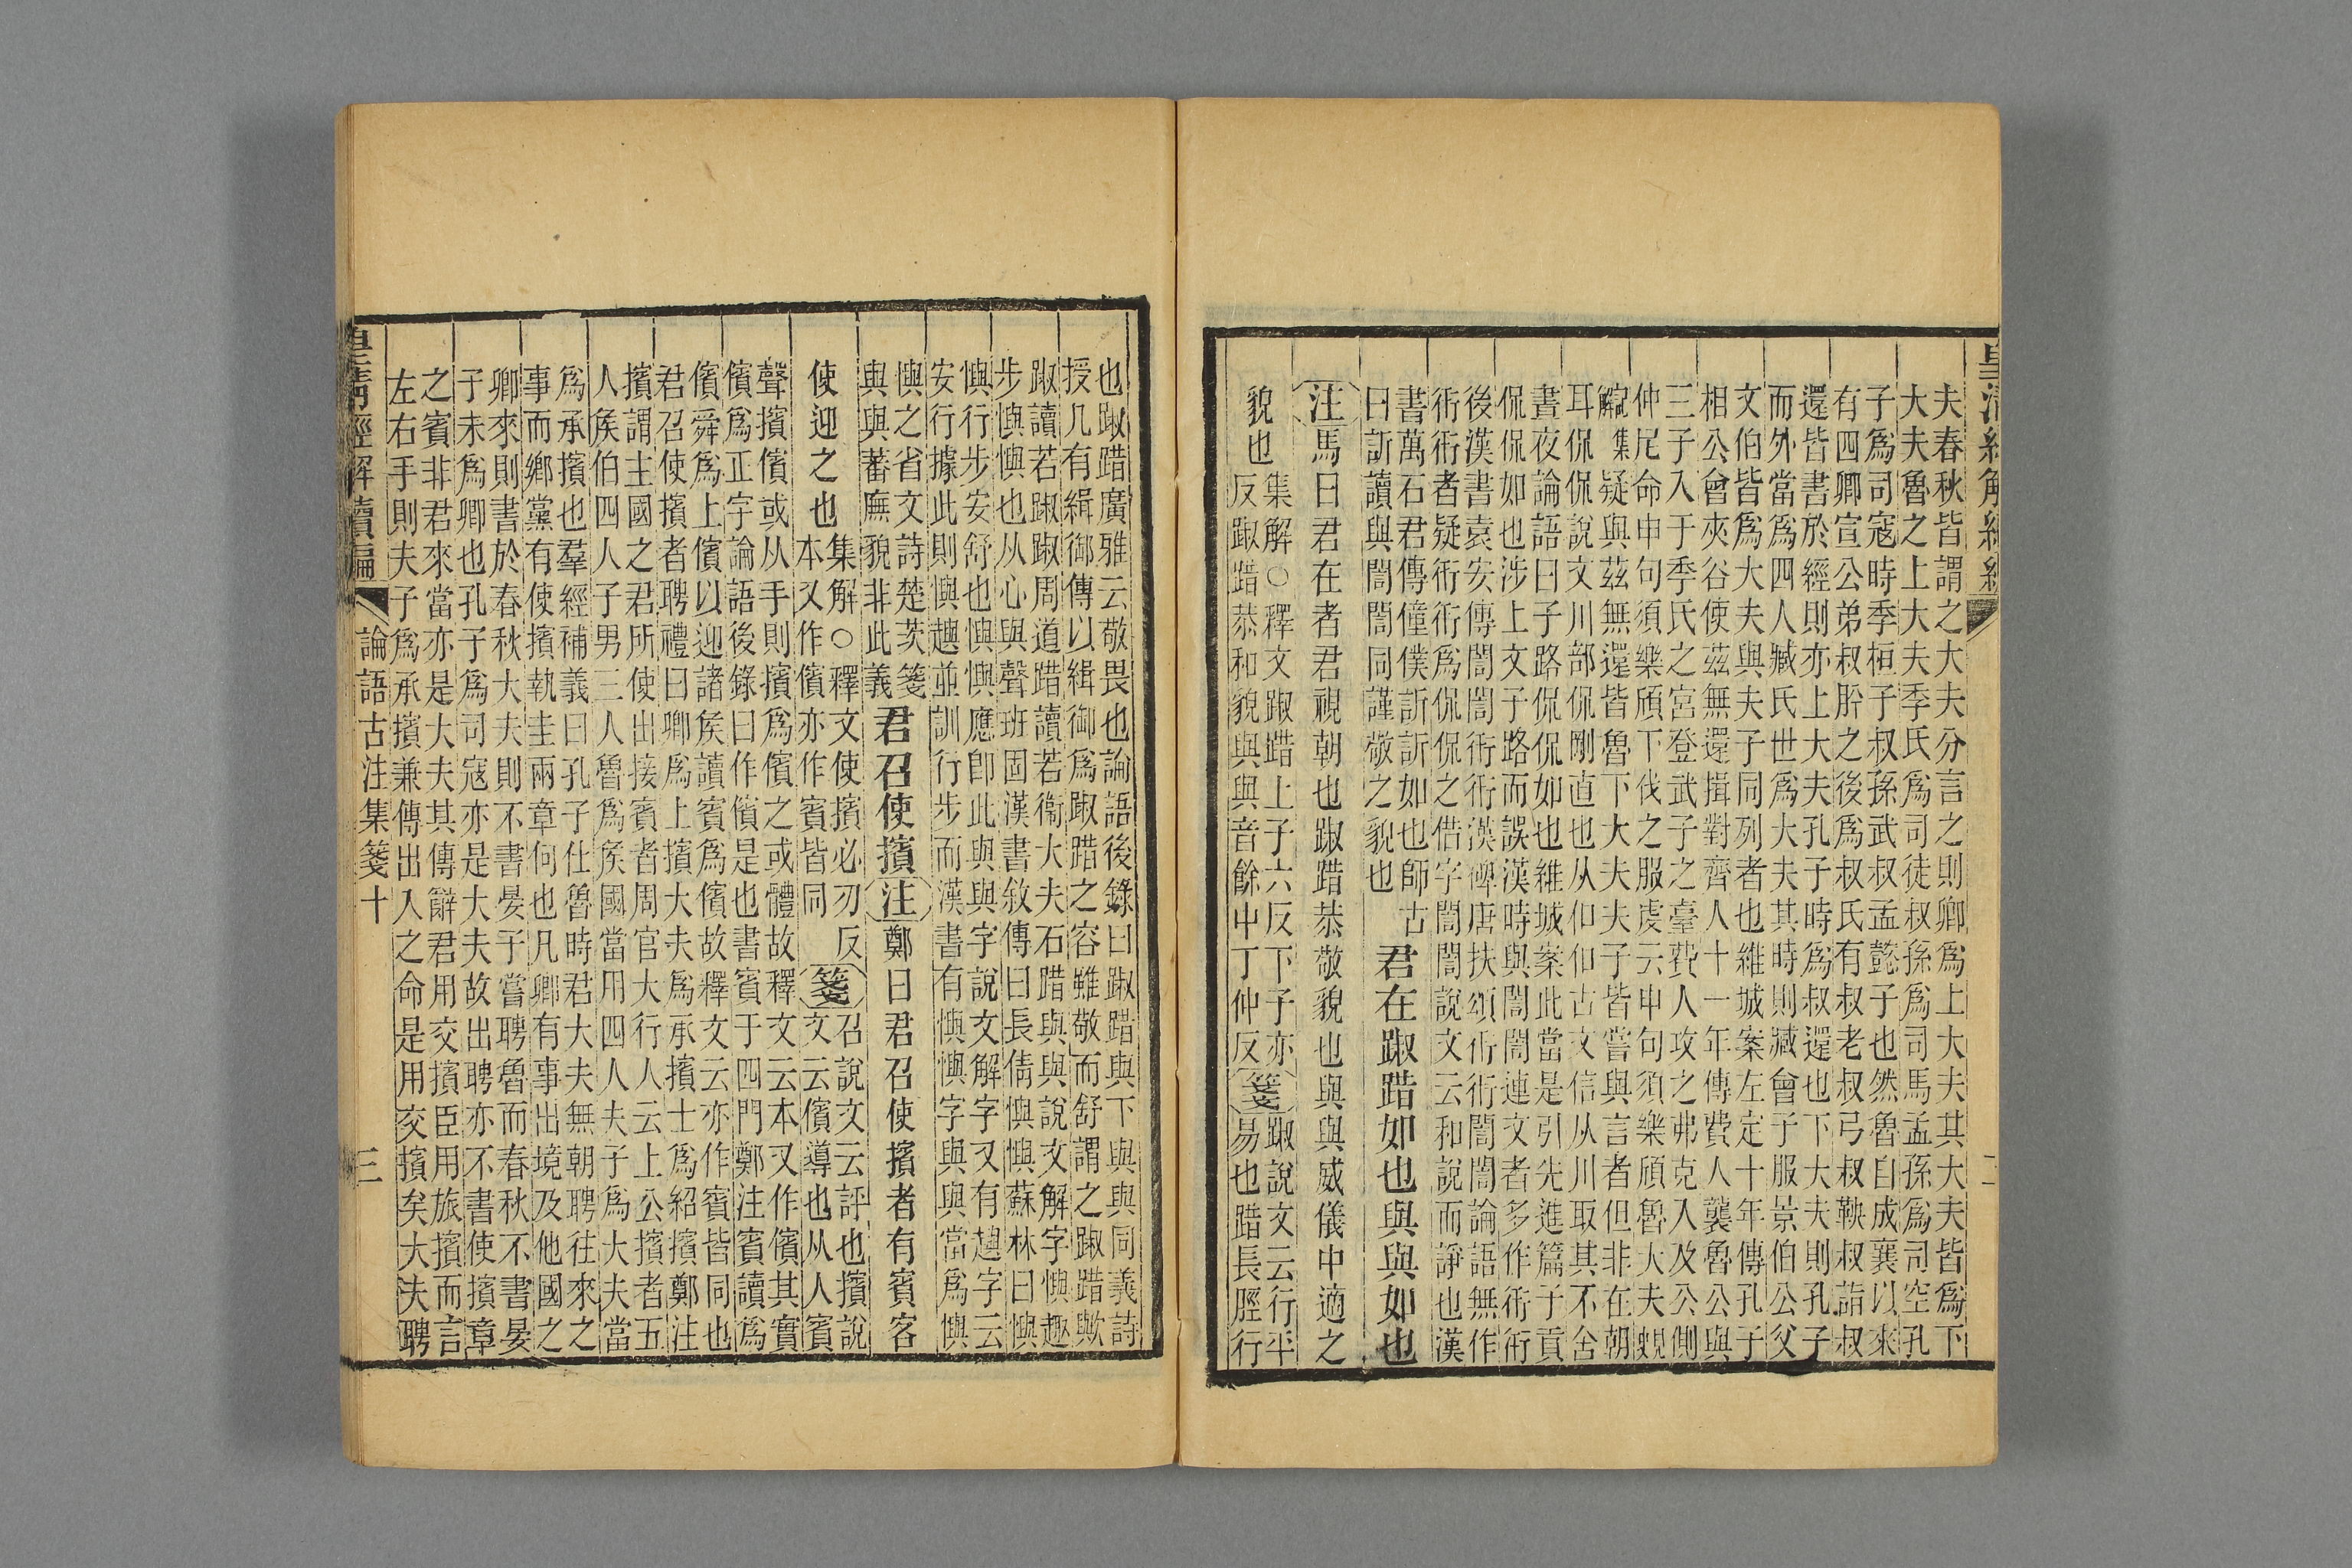 皇清經解續編
二
夫春秋皆謂之大夫分言之則卿爲上大夫其大夫皆爲下
大夫魯之上大夫季氏爲司徒叔孫爲司馬孟孫爲司空孔
子爲司寇時季桓子叔孫武叔孟懿子也然魯自成襄以來
有四卿宣公弟叔肸之後爲叔氏有叔老叔弓叔鞅叔詣叔
還皆書於經則亦上大夫孔子時爲叔還也下大夫則孔子
而外當爲四人臧氏世爲大夫其時則臧會于服景伯公父
文伯皆爲大夫與夫子同列者也維城案左定十年傳孔子
相公會夾谷使茲無還揖對齊人十一年傳費人襲魯公與
三子入于季氏之宮登武子之臺費人攻之弗克入及公側
仲尼命申句須樂頎下伐之服虔云申句須樂頎魯大夫覢
解集疑與茲無還皆魯下大夫夫子皆嘗與言者但非在朝
耳侃侃說文川部侃剛直也从仰仰古文信从川取其不舍
晝夜論語曰子路侃侃如也維城案此當是引先進篇子貢
侃侃如也涉上文子路而誤漢時與誾誾連文者多作衎衎
後漢書袁安傳誾誾衎衎漢碑唐扶頌衎衎誾誾論語無作
衎衎者疑衎衎爲侃侃之偕字誾誾說文云和說而諍也漢
書萬石君傳僮僕訢訢如也師古
曰訢讀與誾誾同謹敬之貌也
君在踧踖如也與與如也
注馬曰君在者君視朝也踧踖恭敬貌也與與威儀中適之
貌也
集解○釋文踧踖上子六反下子亦
反踧踖恭和貌與與音餘中丁仲反
箋
踧說文云行平
易也踖長脛行
也踧踖廣雅云敬畏也論語後錄曰踧踖與下與與同義詩
授几有緝御傳以緝御爲踧踖之容雖敬而舒謂之踧踖歟
踧讀若踧踧周道踖讀若衞大夫石踖與與說文解字懙趣
步懙懙也从心與聲班固漢書敘傳曰長倩懙懙蘇林曰懙
懙行步安舒也懙懙應卽此與與字說文解字又有趩字云
安行據此則懙趩並訓行步而漢書有懙懙字與與當爲懙
懙之省文詩楚茨箋
與與蕃廡貌非此義
君召使擯注鄭曰君召使擯者有賓客
使迎之也
集解○釋文使擯必刃反
本又作儐亦作賓皆同
箋
召說文云評也擯說
文云儐導也从人賓
聲擯儐或从手則擯爲儐之或體故釋文云本又作儐其實
儐爲正字論語後錄曰作儐是也書賓于四門鄭注賓讀爲
儐舜爲上儐以迎諸侯讀賓爲儐故釋文云亦作賓皆同也
君召使擯者聘禮曰卿爲上擯大夫爲承擯士爲紹擯鄭注
擯謂主國之君所使出接賓者周官大行人云上公擯者五
人侯伯四人子男三人魯爲侯國當用四人夫子爲大夫當
爲承擯也羣經補義曰孔子仕魯時君大夫無朝聘往來之
事而鄉黨有使擯執圭兩章何也凡卿有事出境及他國之
卿來則書於春秋大夫則不書晏子嘗聘魯而春秋不書晏
子未爲卿也孔子爲司寇亦是大夫故出聘亦不書使擯章
之賓非君來當亦是大夫其傳辭君用交擯臣用旅擯而言
左右手則夫子爲承擯兼傳出入之命是用交擯矣大夫聘
皇淸經解續編
論語古注集箋十
三